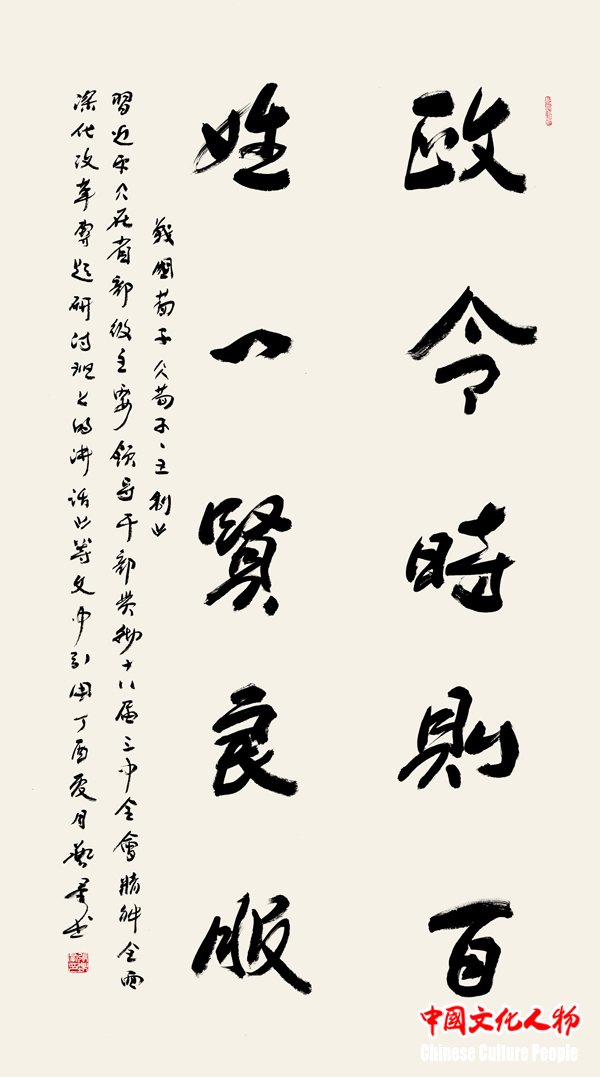 政令時則百
姓一賢良服
戰國荀子《荀子·王制》
習近平《在省部级主要领导干部贯彻十八届三中全會精神全面
深化改革專題研讨班上的讲话》等文中引用丁酉夏月书
中國文化人物
Chinese Culture People